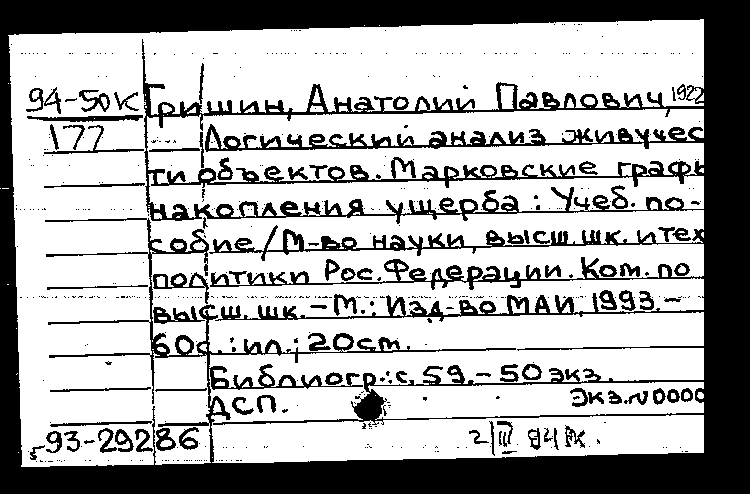 94-50К Гришин, Анатолий Павлович, 1922
177 Логический анализ живучес
ти объектов. Марковские графы
накопления ущерба : Учеб. по-
собие / М-во науки, высш. шк. и тех
политики Рос. Федерации. Ком. по
высш. шк. – М.: Изд-во МАИ, 1993. –
60с. : ил.; 20см.
Библиогр.: с. 59. – 50 экз.
ДСП. Экз.N 0000
93-29286 2/III 94